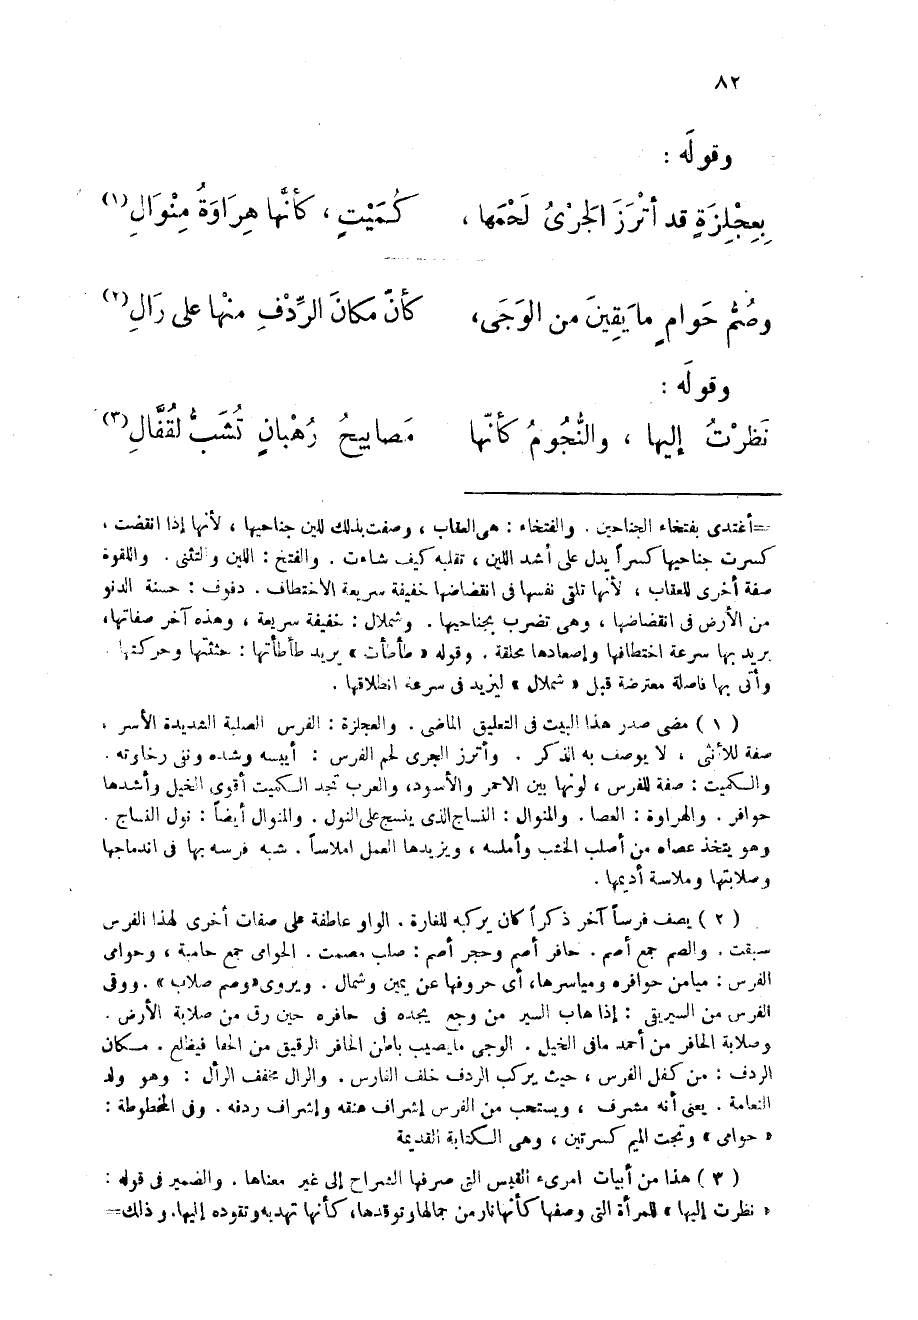 ٨٢
وقولَه :
بِعِجْلِزَةٍ قد أتْرَزَ الجرْىُ لَحْمَها ، كُمَيْتٍ ، كأنَّها هِرَاوَةُ مِنْوَالِ(١)
وصُمٍّ حَوامٍ ما يَقِينَ من الوَجَى، كأنّ مكانَ الرِّدْفِ منْها على رَالِ(٢)
وقولَه :
نَظَرْتُ إليها ، والنُّجُومُ كأنّها مَصابيحُ رُهْبانٍ تُشَبُّ لقُفَّالِ(٣)
=أغتدى بفتخاء الجناحين . والفتخاء : هى العقاب ، وصفت بذلك للين جناحيها ، لأنها إذا انقضت ،
كسرت جناحيها كسراً يدل على أشد اللين ، تقلبه كيف شاءت . والفتخ : اللين والتثنى . واللقوة
صفة أخرى للعقاب ، لأنها تلقى نفسها فى انقضاضها خفيفة سريعة الاختطاف . دفوف : حسنة الدنو
من الأرض فى انقضاضها ، وهى تضرب بجناحيها . وشملال : خفيفة سريعة ، وهذه آخر صفاتها،
يريد بها سرعة اختطافها وإصعادها محلقة . وقوله « طأطأت » يريد طأطأتها : حثثتها وحركتها .
وأتى بها فاصلة معترضة قبل « شملال » ليزيد فى سرعة انطلاقها .
( ١ ) مضى صدر هذا البيت فى التعليق الماضى . والعجلزة : الفرس الصلبة الشديدة الأسر ،
صفة للأنثى ، لا يوصف به الذكر . وأترز الجرى لحم الفرس : أيبسه وشده ونفى رخاوته .
والكميت : صفة للفرس ، لونها بين الاحمر والأسود، والعرب تجد الكميت أقوى الخيل وأشدها
حوافر . والهراوة : العصا . والمنوال : النساج الذى ينسج على النول . والمنوال أيضاً : نول النساج .
وهو يتخذ عصاه من أصلب الخشب وأملسه ، ويزيدها العمل املاساً . شبه فرسه بها فى اندماجها
وصلابتها وملاسة أديمها .
( ٢ ) يصف فرساً آخر ذكراً كان يركبه للغارة . الواو عاطفة على صفات أخرى لهذا الفرس
سبقت . والصم جمع أصم . حافر أصم وحجر أصم : صلب مصمت . الحوامى جمع حامية ، وحوامى
الفرس : ميامن حوافره ومياسرها، أى حروفها عن يمين وشمال . ويروى «وصم صلاب » . ووقى
الفرس من السير يقى : إذا هاب السير من وجع يجده فى حافره حين رق من صلابة الأرض .
وصلابة الحافر من أحمد مافى الخيل . الوجى مايصيب باطن الحافر الرقيق من الحفا فيظلع . مكان
الردف : من كفل الفرس ، حيث يركب الردف خلف الفارس . والرال مخفف الرأل : وهو ولد
النعامة . يعنى أنه مشرف ، ويستحب من الفرس إشراف عنقه وإشراف ردفه . وفى المخطوطة :
« حوامى » وتحت الميم كسرتين ، وهى الكتابة القديمة
( ٣ ) هذا من أبيات امرىء القيس التى صرفها الشراح إلى غير معناها . والضمير فى قوله :
« نظرت إليها » للمرأة التى وصفها كأنها نار من جمالها وتوقدها، كأنها تهديه وتقوده إليها. وذلك=